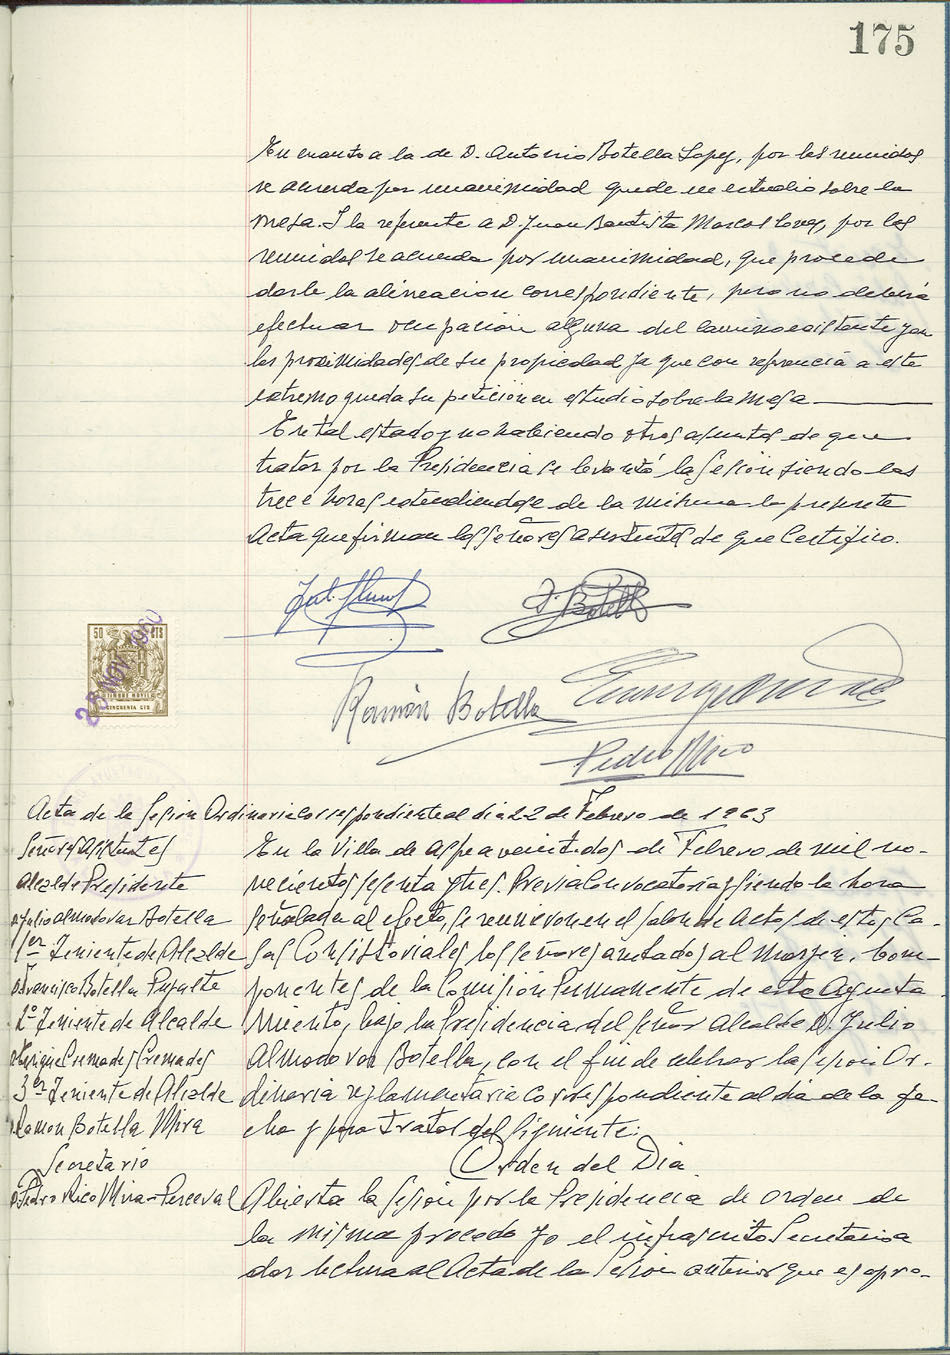 175
En cuanto a la de D. Antonio Botella Lopez, por los reunidos
se acuerda por unanimidad quede en estudio sobre la
mesa. Y la referente a D. Juan Bautista Marcos Lovez, por los
reunidos se acuerda por unanimidad, que procede
darle la alineacion correspondiente, pero no deberá
efectuar ocupación alguna del camino existente y en
las proximidades de su propiedad ya que con referencia a este
extremo queda su peticion en estudio sobre la mesa
En tal estado y no habiendo otros asuntos de que
tratar por la Presidencia se levantó la Sesion siendo las
trece horas extendiendose de la misma la presente
Acta que firman los Señores asistentes de que Certifico.
J. Botella
Ramón Botella
Pedro Rico
50 CTS
TIMBRE MOVIL
CINCUENTA CTS
25 NOV. 1960
Acta de la Sesion Ordinaria correspondiente al dia 22 de Febrero de 1963
Señores Asistentes
Alcalde Presidente
D. Julio Almodovar Botella
1er Teniente de Alcalde
D. Francisco Botella Pujalte
2º Teniente de Alcalde
D. Enrique Cremades Cremades
3er Teniente de Alcalde
D. Ramon Botella Mira
Secretario
D. Pedro Rico Mira-Perceval
En la Villa de Aspe a veintidos de Febrero de mil no-
vecientos sesenta y tres. Previa Convocatoria y siendo la hora
señalada al efecto, se reunieron en el salon de Actos de estas Ca-
sas Consistoriales los señores anotados al margen, Com-
ponentes de la Comisión Permanente de este Ayunta
miento, bajo la Presidencia del Señor Alcalde D. Julio
Almodovar Botella, con el fin de celebrar la sesion Or-
dinaria reglamentaria correspondiente al dia de la fe-
cha y para tratar del siguiente:
Orden del Dia
Abierta la Sesion por la Presidencia de orden de
la misma procedo yo el infrascrito Secretario a
dar lectura al Acta de la Sesion anterior que es apro-